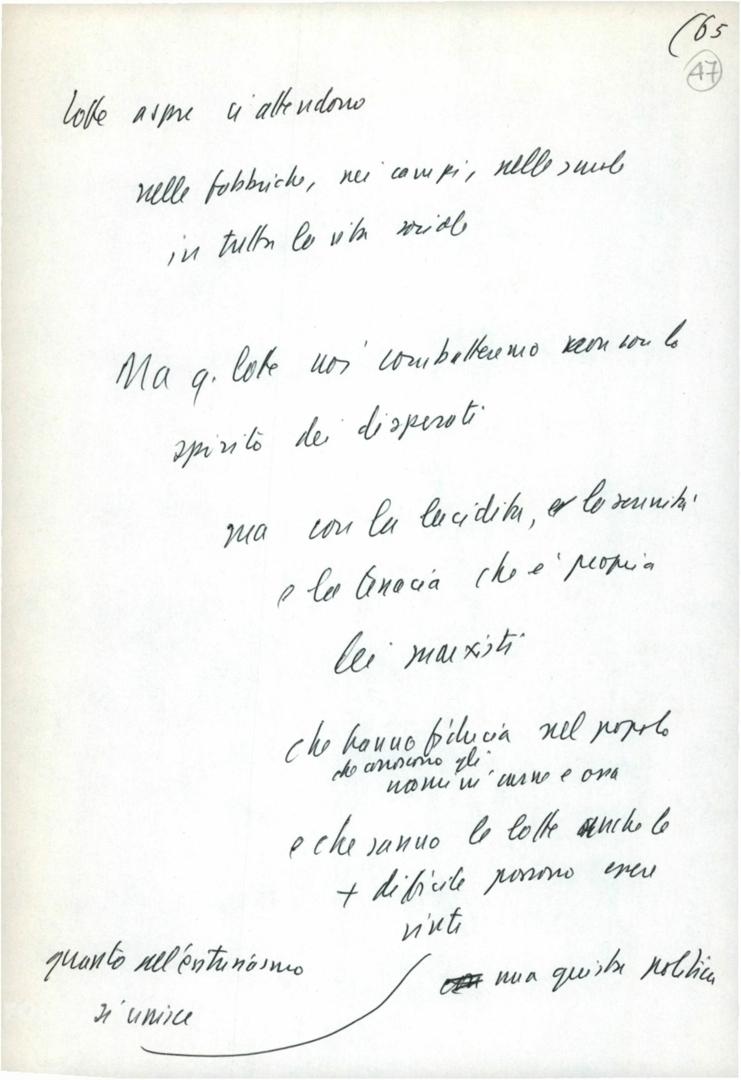 (65
47
lotte aspre ci attendono
nelle fabbriche, nei campi, nelle scuole
in tutta la vita sociale
Ma q. lotte noi combatteremo non con lo
spirito dei disperati
ma con la lucidità, e la serenità
e la tenacia che e' propria
dei marxisti
che hanno fiducia nel popolo
che conoscono gli
uomini in carne e ossa
e che sanno le lotte anche le
+ difficile possono essere
vinte
quanto nell'entusiasmo
si unisce
una giusta politica